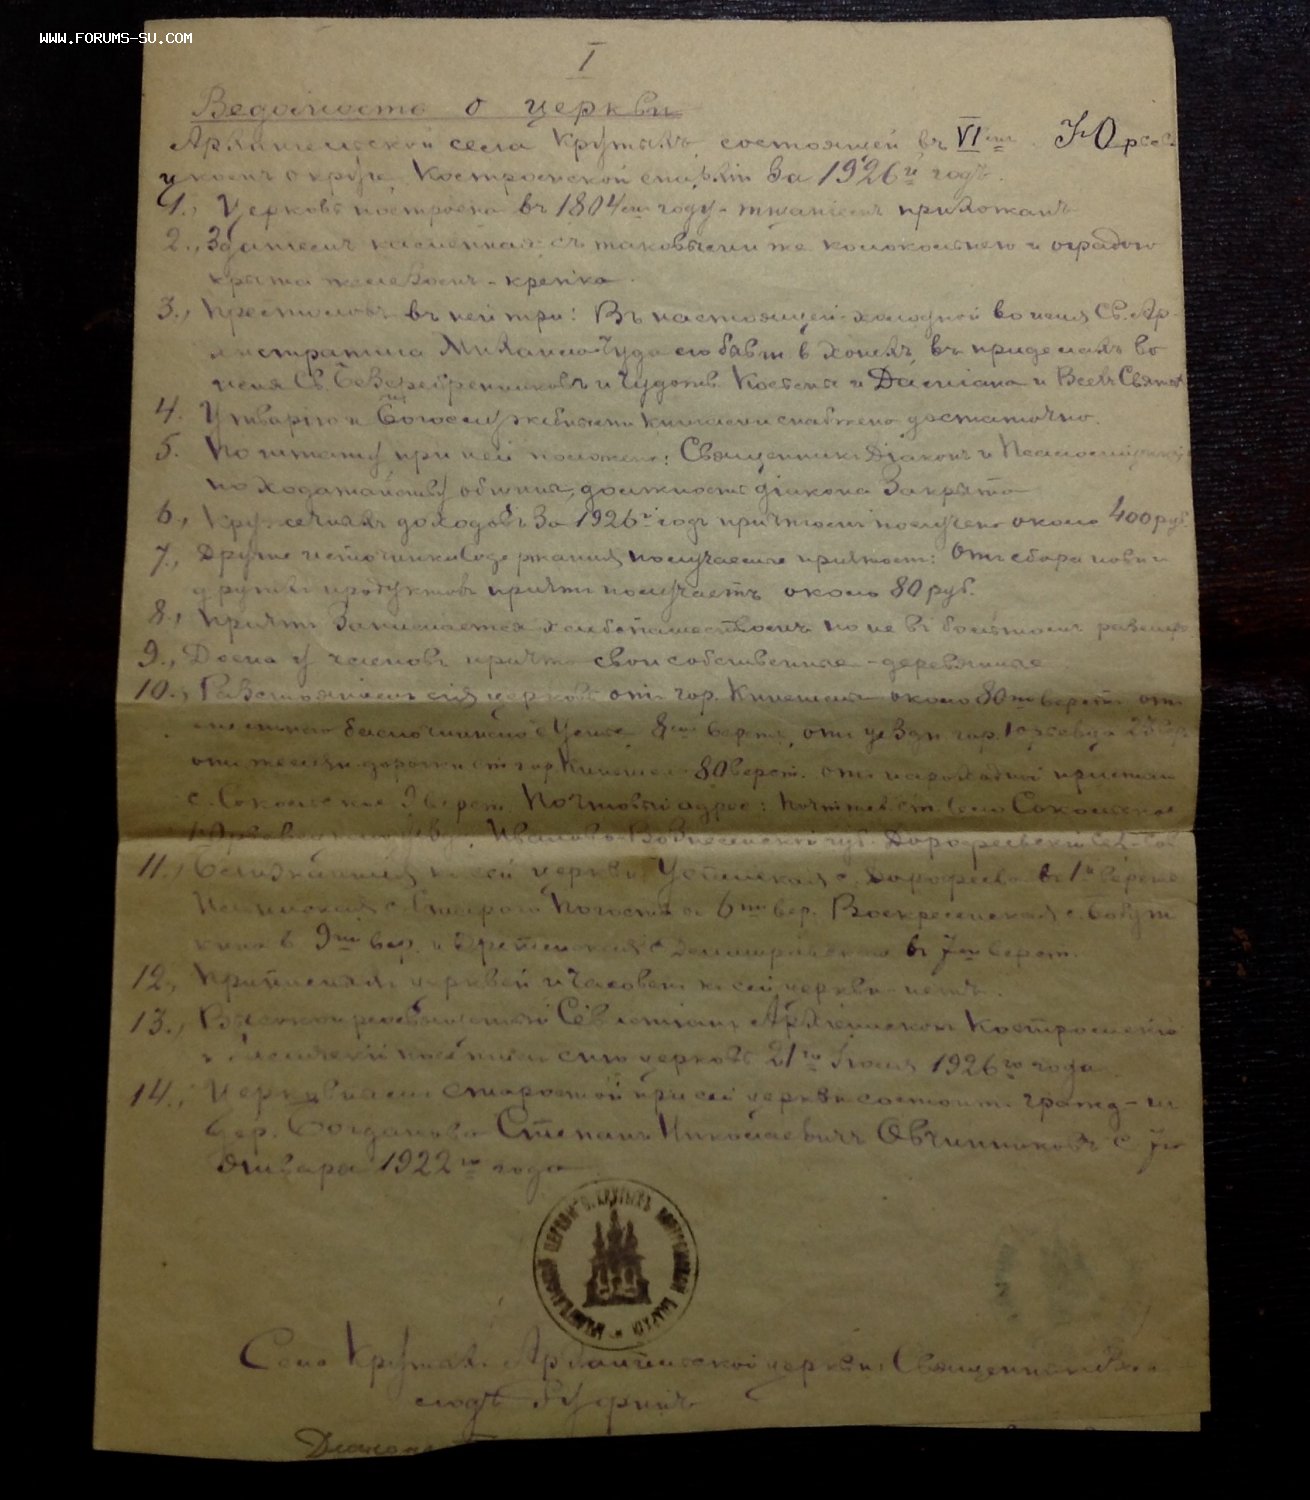 WWW.FORUMS-SU.COM
I
Ведомость о церкви
Архангельской села Крутыхъ состоящей въ VI-мъ Юрьев
цкомъ округѣ, Костромской епархіи за 1926й годъ.
1., Церковь построена въ 1804мъ году - тщаніемъ прихожанъ
2., Зданіемъ каменная съ таковыми же колокольнею и оградою
крыта желѣзомъ - крепка.
3., Престоловъ въ ней три: Въ настоящей холодной во имя Св. Ар-
хистратига Михаила Чуда его бывш. в Хонехъ, въ приделахъ во
имя Св. Безсребренниковъ и Чудотв. Косьмы и Даміана и Всехъ Святыхъ
4. Утварію и Богослужебными книгами снабжена достаточно.
5. По штату при ней положено: Священникъ Діаконъ и Псаломщикъ
по ходатайству общины, должность діакона закрыта
6., Кружечныхъ доходовъ за 1926й годъ причтомъ получено около 400 руб.
7., Другие источники содержания получаемые причтом: отъ сбора нови и
другихъ продуктовъ причтъ получаетъ около 80 руб.
8., Причтъ занимается хлебопашествомъ но не въ большомъ размере
9., Дома у членовъ причта свои собственные - деревянные
10., Разстояніемъ сія церковь отъ гор. Кинешмы около 80ти верстъ отъ
местнаго благочиннаго 8ми верстъ, отъ уездн. гор. Юрьевца 25 вер.
отъ желѣзн. дороги ст. гор. Кинешма 80 верст. отъ пароходной пристани
с. Сокольское 9 верст. Почтовый адрес: почт. село Сокольское
Иваново-Вознесенской губ. Дорофеевскій
11., Ближайшія къ сей церкви: Успенская с. Дорофеева въ 1й верстѣ
с. Стараго Погоста въ 6ти вер. Воскресенская с.
въ 9ти вер. и в 7ми верст.
12., Приписныхъ церквей и часовенъ къ сей церкви - нетъ.
13., Высокопреосвященный Севастіанъ Архіепископъ Костромскій
и Галичскій посетилъ сию церковь 21го Іюня 1926го года.
14., Церковнымъ старостой при сей церкви состоитъ гражд-нъ
дер. Богданова Степанъ Николаевичъ Овчинниковъ с 7го
Января 1922го года
АРХАНГЕЛЬСКОЙ ЦЕРКВИ С. КРУТЫХЪ КОСТРОМСКОЙ ЕПАРХІИ
Село Крутыхъ Архангельской церкви Священник
Діаконъ